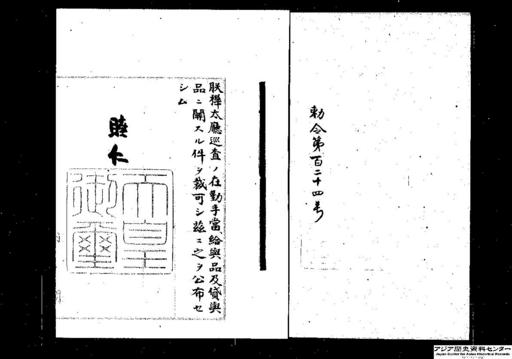 勅令第百二十四号
朕樺太廳巡査ノ在勤手當、給與品及貸與
品ニ關スル件ヲ裁可シ玆ニ之ヲ公布セ
シム
睦仁
天皇
御璽
アジア歴史資料センター
Japan Center for Asian Historical Records